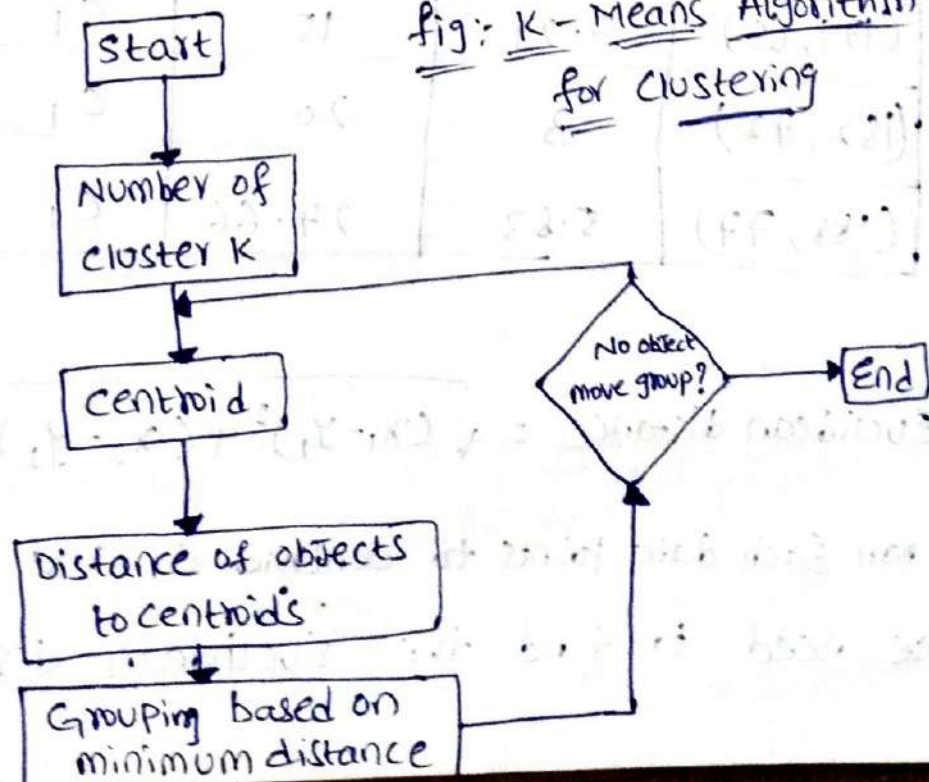 fig: K-Means Algorithm
for Clustering
Start
Number of
cluster K
Centroid
No object
move group?
End
Distance of objects
to centroids
Grouping based on
minimum distance